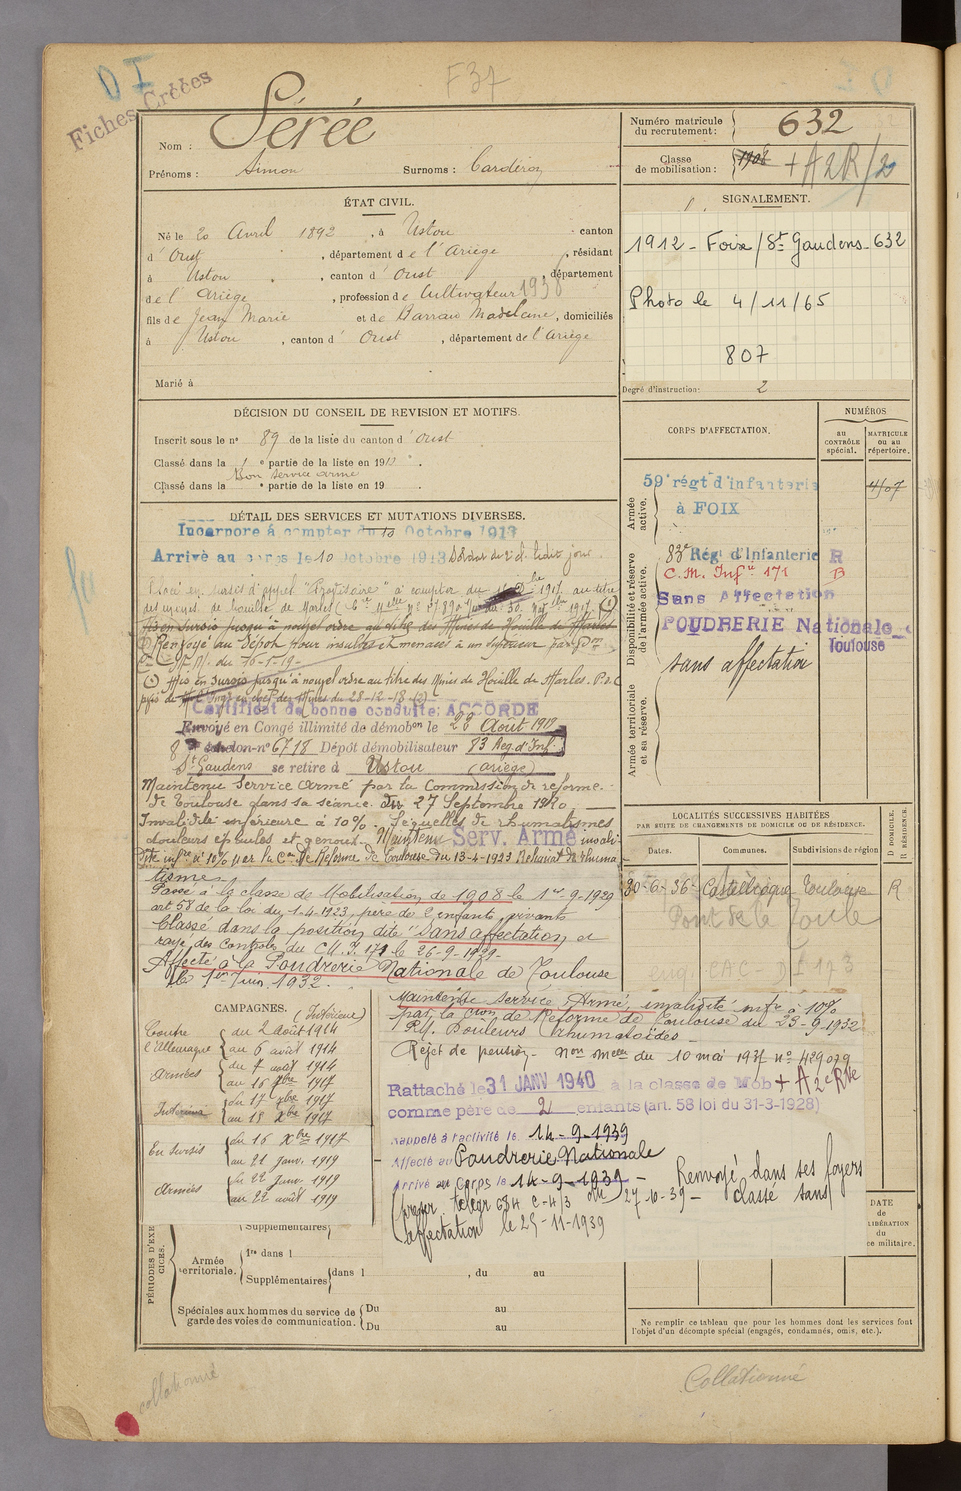 D I
Fiches Créées
F 37
Nom : Sérée
Prénoms : Simon Surnoms :
Numéro matricule du recrutement : 632
Classe de mobilisation : 1908 + A2R/20
ÉTAT CIVIL.
Né le 20 Avril 1892, à Ustou canton
d' Oust, département de l'Ariège, résidant
à Ustou, canton d' Oust, département
de l' Ariège, profession de Cultivateur 1938
fils de Jean Marie et de Barrau Madeleine, domiciliés
à Ustou, canton d' Oust, département de l'Ariège
Marié à
SIGNALEMENT.
1912 - Foix / St Gaudens - 632
Photo le 4/11/65
807
Degré d'instruction : 2
DÉCISION DU CONSEIL DE REVISION ET MOTIFS.
Inscrit sous le n° 89 de la liste du canton d' Oust.
Classé dans la 1e partie de la liste en 191
Bon service armé
Classé dans la e partie de la liste en 19
CORPS D'AFFECTATION.
NUMÉROS
au CONTRÔLE spécial.
MATRICULE ou au répertoire.
Armée active.
59e régt d'infanterie
à FOIX
Disponibilité et réserve de l'armée active.
83e Régt d'Infanterie R
C. M. Infrie 171
Sans Affectation
POUDRERIE Nationale
Toulouse
sans affectation
Armée territoriale et sa réserve.
DÉTAIL DES SERVICES ET MUTATIONS DIVERSES.
Incorporé à compter du 10 Octobre 1913
Arrivé au corps le 10 Octobre 1913 Soldat de 2e cl. ledit jour
Placé en sursis d'appel à compter du 1917 au titre
des mines de houille de Marles
Mis en sursis jusqu'à nouvel ordre au titre des Mines de Houille de Marles
Renvoyé au Dépôt pour insultes et menaces à un supérieur
du 16-1-19-
Mis en Sursis jusqu'à nouvel ordre au titre des Mines de Houille de Marles. P. d. C
des Mines du 28-12-18
Certificat de bonne conduite: ACCORDÉ
Envoyé en Congé illimité de démobon le 22 Août 1919
8e échelon n° 6718 Dépôt démobilisateur 83 Reg. d'Inf.
St Gaudens se retire à Ustou (Ariège)
Maintenu Service Armé par la Commission de réforme
de Toulouse dans sa séance du 27 Septembre 1920
Invalidité inférieure à 10%. Séquelles de rhumatismes
douleurs épaules et genoux. Maintenu Serv. Armé invali-
dité infre à 10% par la Con de Réforme de Toulouse du 13-4-1923 Reliquat de rhuma
tismes
Passé à la classe de Mobilisation de 1908 le 1er-9-1929
art. 58 de la loi du 1-4-1923, père de 2 enfants vivants
Classé dans la position dite "Sans affectation" et
rayé des Contrôles du C.M.I. 171 le 26-9-1929-
Affecté à la Poudrerie Nationale de Toulouse
le 1er Juin 1932.
LOCALITÉS SUCCESSIVES HABITÉES
PAR SUITE DE CHANGEMENTS DE DOMICILE OU DE RÉSIDENCE.
Dates. Communes. Subdivisions de région D DOMICILE. R RÉSIDENCE.
30-6-36 Toulouse R
Pont de la Toule
CAMPAGNES. (Intérieur)
Contre l'Allemagne
du 2 août 1914
au 6 août 1914
Armées
du 7 août 1914
au 16 Xbre 1917
Intérieur
du 17 Xbre 1917
au 15 Xbre 1917
En Sursis
du 16 Xbre 1917
au 21 Janv. 1919
Armées
du 22 Janv. 1919
au 22 août 1919
Maintenu service Armé, invalidité infre à 10%
par la Cion de Réforme de Toulouse du 23-9-1932
P.V. Douleurs rhumatoïdes -
Rejet de pension - du 10 mai 1937 n° 429079
Rattaché le 31 JANV 1940 à la classe de Mob + A 2e Rve
comme père de 2 enfants (art. 58 loi du 31-3-1928)
Rappelé à l'activité le 14-9-1939
Affecté au Poudrerie Nationale
Arrivé au Corps le 14-9-1939 - Renvoyé dans ses foyers
télégr 684 C-4/3 du 27-10-39 - classé sans
affectation le 25-11-1939
PÉRIODES D'EXERCICES.
Supplémentaires
Armée territoriale.
1re dans l
Supplémentaires dans l , du au
Spéciales aux hommes du service de garde des voies de communication.
Du au
Du au
DATE de LIBÉRATION du service militaire.
Ne remplir ce tableau que pour les hommes dont les services font
l'objet d'un décompte spécial (engagés, condamnés, omis, etc.).
collationné
Collationné